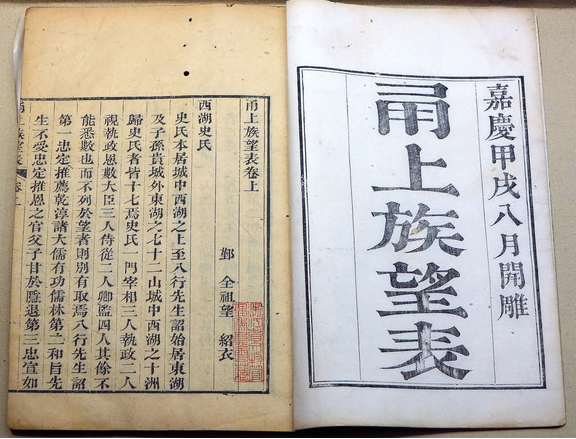 嘉慶甲戌八月開雕
甬上族望表
甬上族望表卷上
鄞 全祖望 紹衣
西湖史氏
史氏本居城中西湖之上至八行先生詔始居東湖
及子孫貴城外東湖之七十二山城中西湖之十洲
歸史氏者皆十七焉史氏一門宰相三人執政二人
視執政恩數大臣三人侍從二人卿監四人其餘不
能悉數也而不列於望者則別有取焉八行先生詔
第一忠定推薦乾淳諸大儒有功儒林第二和旨先
生不受忠定推恩之官父子甘於隱退第三忠宣如
甬上族望表 卷上